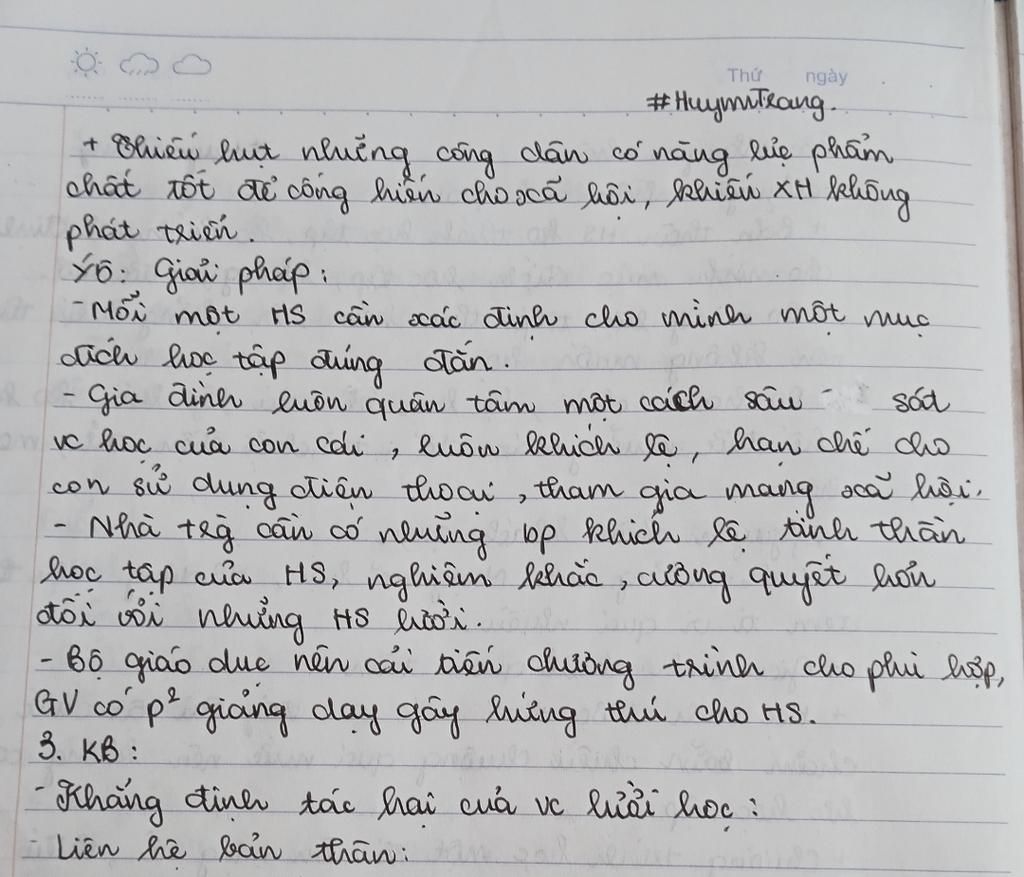 Thứ ngày
#HuymiTrang.
+ Thiếu hụt những công dân có năng lực phẩm
chất tốt để cống hiến cho xã hội, khiến XH không
phát triển.
Ý6: Giải pháp:
- Mỗi một HS cần xác định cho mình một mục
đích học tập đúng đắn.
- Gia đình luôn quân tâm một cách sâu - sát
vc học của con cái, luôn khích lệ, hạn chế cho
con sử dụng điện thoại, tham gia mạng xã hội.
- Nhà trg cần có những bp khích lệ tinh thần
học tập của HS, nghiêm khắc, cương quyết hơn
đối với những HS lười.
- Bộ giáo dục nên cải tiến chương trình cho phù hợp,
GV có p² giảng dạy gây hứng thú cho HS.
3. KB:
- Khẳng định tác hại của vc lười học:
- Liên hệ bản thân: